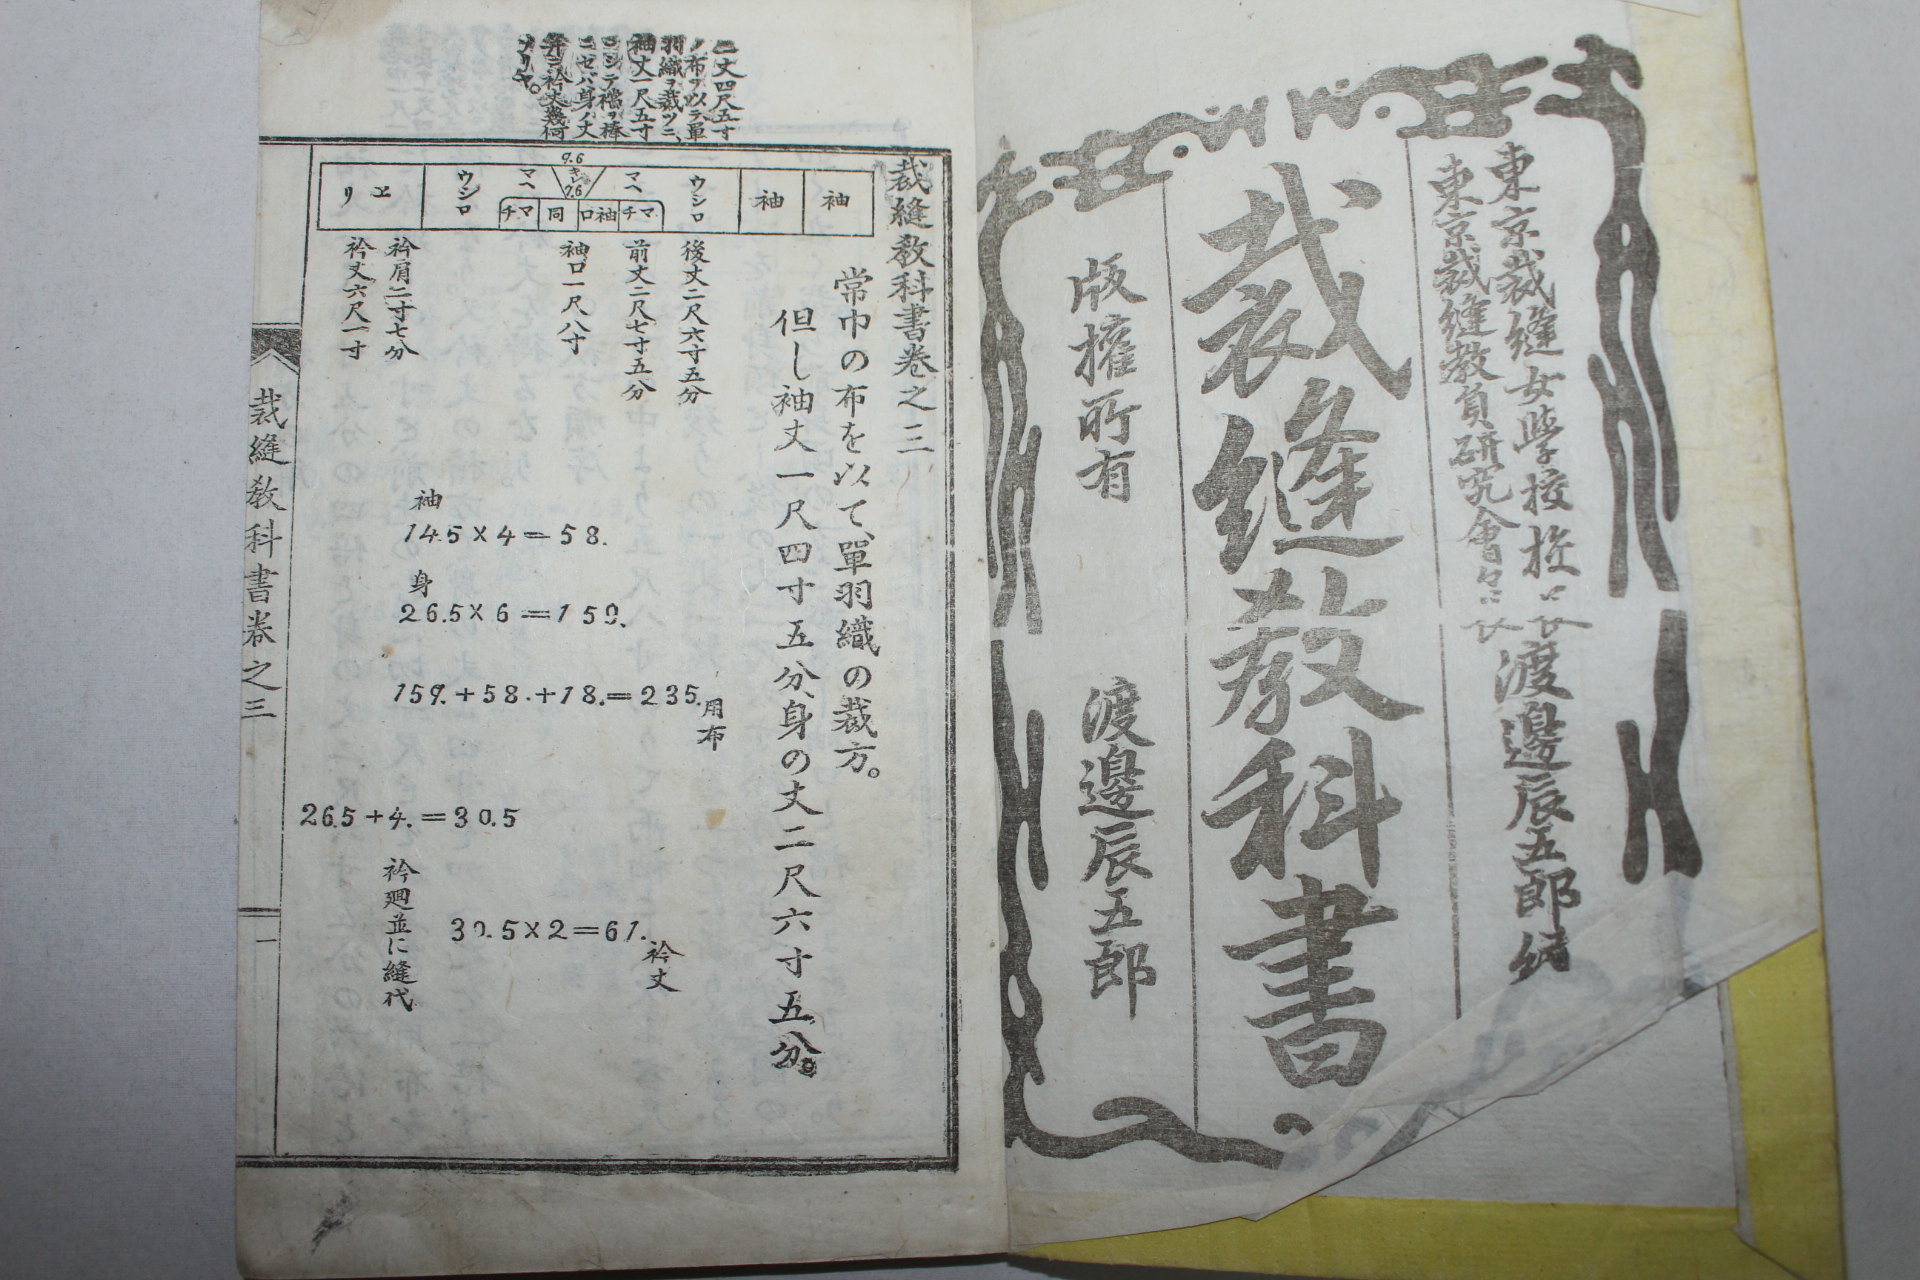 東京裁縫女學校校長
東京裁縫教員研究會會長
渡邊辰五郎編
裁縫教科書
版權所有
渡邊辰五郎
二丈四尺五寸
ノ布ヲ以テ單
羽織ヲ裁ツニ、
袖丈一尺五寸
ニシテ襠ヲ棒
ニセバ身ノ丈
并ニ衿丈幾何
ナリヤ。
裁縫教科書卷之三
常巾の布を以て、單羽織の裁方。
但し袖丈一尺四寸五分、身の丈二尺六寸五分。
袖
袖
ウシロ
マヘ
9.6
キレ
7.6
マヘ
ウシロ
ヱリ
マチ
袖口
同
マチ
後丈二尺六寸五分
前丈二尺七寸五分
袖口一尺八寸
衿肩二寸七分
衿丈六尺一寸
袖
14.5×4=58.
身
26.5×6=159.
159.+58.+18.=235.
用布
26.5+4.=30.5
衿廻並に縫代
30.5×2=61.
衿丈
裁縫教科書卷之三
一